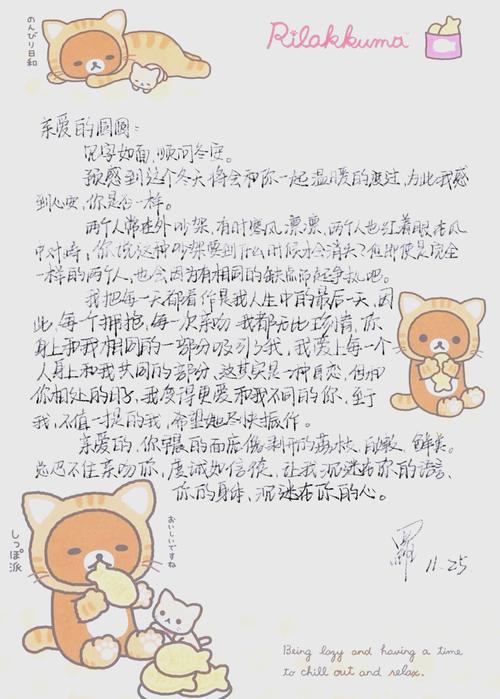 のんびり日和
Rilakkuma
亲爱的圆圆：
见字如面，顺问冬安。
预感到这个冬天将会和你一起温暖的度过，为此我感
到心安，你是否一样。
两个人常在外吵架，有时寒风凛凛，两个人也红着眼在风
中对峙，你说这种吵架要到什么时候才会消失？但即使是完全
一样的两个人，也会因为有相同的缺点而起争执吧。
我把每一天都看作是我人生中的最后一天，因
此，每个拥抱，每一次亲吻我都无比珍惜，你
身上和我相同的一部分吸引了我，我爱上每一个
人身上和我共同的部分，这其实是一种自恋，但和
你相处的日子，我变得更爱和我不同的你，至于
我，不值一提的我，希望她尽快振作。
亲爱的，你早晨的面庞像剥开的荔枝，白嫩，鲜美。
忍不住亲吻你，虔诚如信徒，让我沉迷在你的语言、
你的身体，沉迷在你的心。
羅 11.25
しっぽ派
おいしいですね
Being lazy and having a time
to chill out and relax.